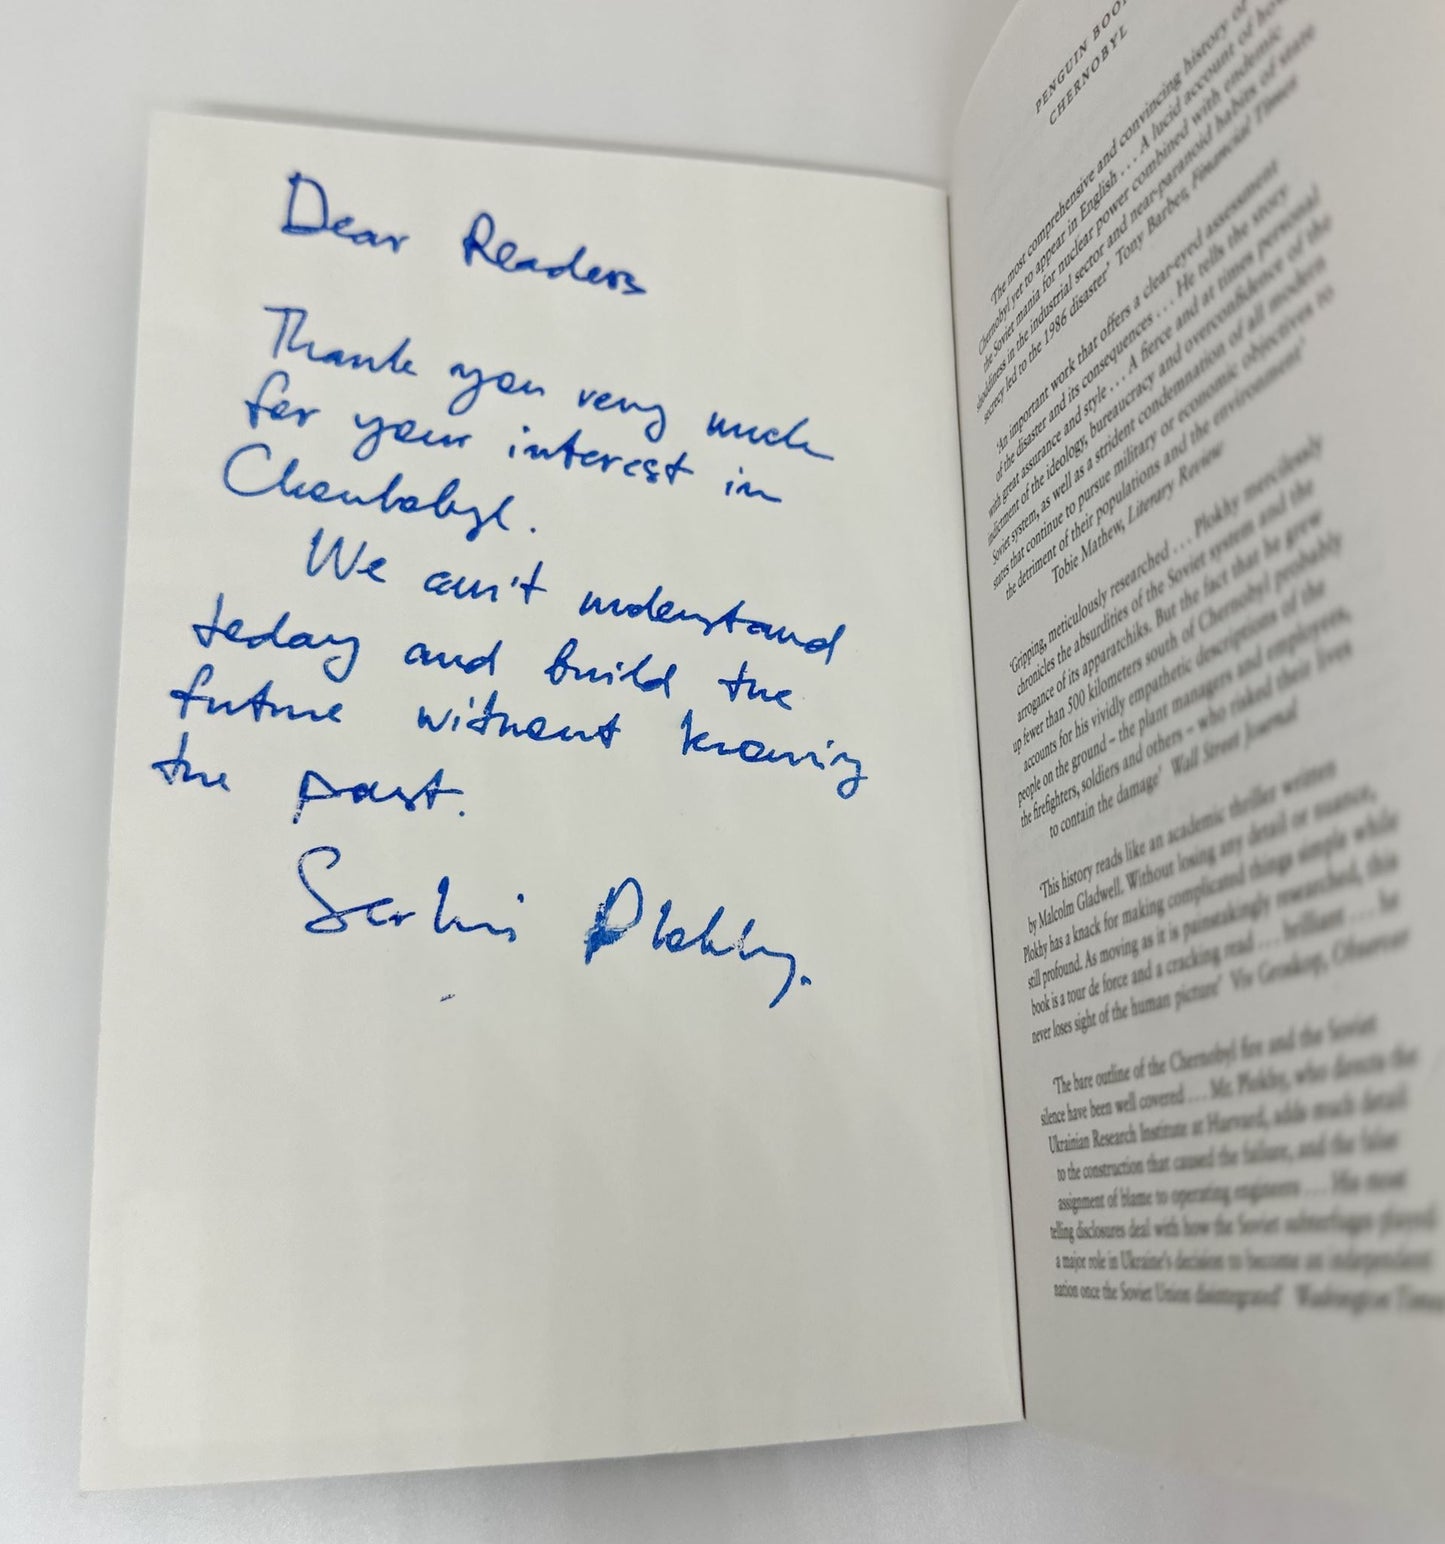 Dear Readers
Thank you very much
for your interest in
Chernobyl.
We can't understand
today and build the
future without knowing
the past.
Serhii Plokhy.
PENGUIN BOO
CHERNOBYL
'The most comprehensive and convincing history of
Chernobyl yet to appear in English . . . A lucid account of how
the Soviet mania for nuclear power combined with endemic
shoddiness in the industrial sector and near-paranoid habits of state
secrecy led to the 1986 disaster' Tony Barber, Financial Times
'An important work that offers a clear-eyed assessment
of the disaster and its consequences . . . He tells the story
with great assurance and style . . . A fierce and at times personal
indictment of the ideology, bureaucracy and overconfidence of the
Soviet system, as well as a strident condemnation of all modern
states that continue to pursue military or economic objectives to
the detriment of their populations and the environment'
Tobie Mathew, Literary Review
'Gripping, meticulously researched . . . Plokhy mercilessly
chronicles the absurdities of the Soviet system and the
arrogance of its apparatchiks. But the fact that he grew
up fewer than 500 kilometers south of Chernobyl probably
accounts for his vividly empathetic descriptions of the
people on the ground – the plant managers and employees,
the firefighters, soldiers and others – who risked their lives
to contain the damage' Wall Street Journal
'This history reads like an academic thriller written
by Malcolm Gladwell. Without losing any detail or nuance,
Plokhy has a knack for making complicated things simple while
still profound. As moving as it is painstakingly researched, this
book is a tour de force and a cracking read . . . brilliant . . . he
never loses sight of the human picture' Viv Groskop, Observer
'The bare outline of the Chernobyl fire and the Soviet
silence have been well covered . . . Mr. Plokhy, who directs the
Ukrainian Research Institute at Harvard, adds much detail
to the construction that caused the failure, and the false
assignment of blame to operating engineers . . . His most
telling disclosures deal with how the Soviet subterfuges played
a major role in Ukraine's decision to become an independent
nation once the Soviet Union disintegrated' Washington Times